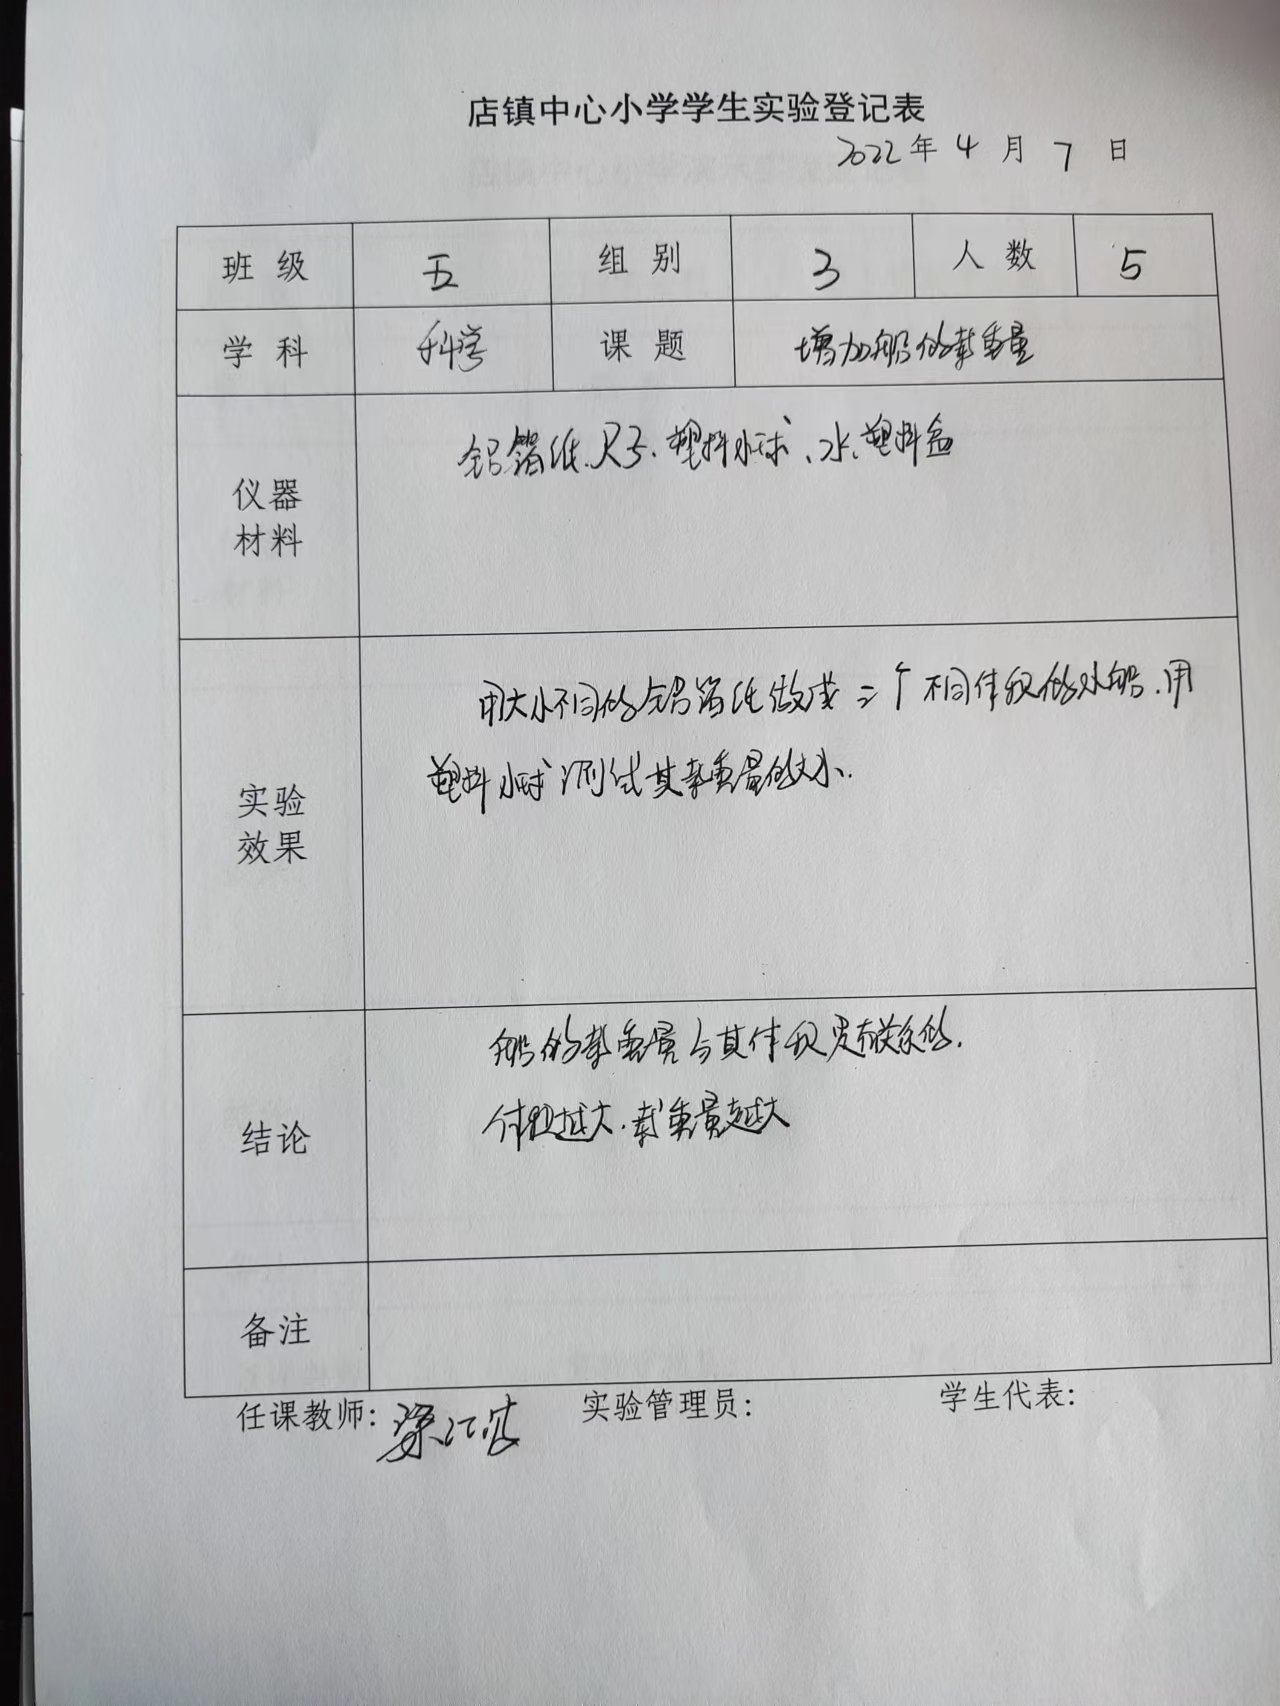 店镇中心小学学生实验登记表
2022年4月7日
班级 五 组别 3 人数 5
学科 科学 课题 增加船的载重量
仪器材料 铝箔纸、尺子、塑料小球、水、塑料盒
实验效果 用大小不同的铝箔纸做成三个不同体积的小船.用
塑料小球测试其载重量的大小.
结论 船的载重量与其体积是有关系的.
体积越大.载重量越大
备注
任课教师: 梁江 实验管理员: 学生代表: